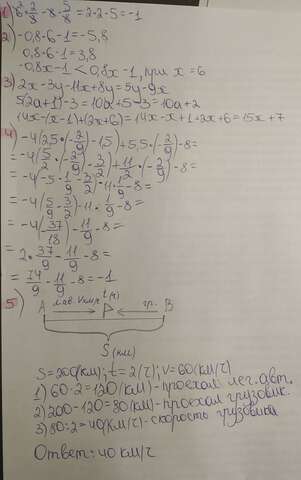 1) 6·2/3-8·5/8=2-2-5=-1
2) -0,8·6-1=-5,8
0,8·6-1=3,8
-0,8x-1 < 0,8x-1, при x=6
3) 2x-3y-11x+8y=5y-9x
5(2a+1)-3=10a+5-3=10a+2
14x-(x-1)+(2x+6)=14x-x+1+2x+6=15x+7
4) -4(2,5·(-2/9)-1,5)+5,5·(-2/9)-8=
=-4(5/2·(-2/9)-3/2)+11/2·(-2/9)-8=
=-4(-5·1/9-3/2)-11·1/9-8=
=-4(5/9-3/2)-11·1/9-8=
=-4(37/18)-11/9-8=
=2·37/9-11/9-8=
=74/9-11/9-8=-1
5) лав. Vкм/ч t(ч) гр.
A B
S(км)
S=200(км); t=2(ч); v=60(км/ч)
1) 60·2=120(км)-проехал лег. авт.
2) 200-120=80(км)-проехал грузовик.
3) 80:2=40(км/ч)-скорость грузовика
Ответ: 40 км/ч